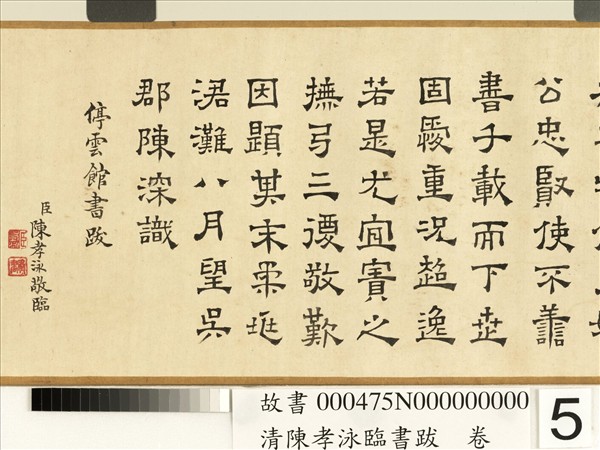 公忠賢使不譱
書千載而下世
固愛重況超逸
若是尤宜寶之
撫弓三復敬歎
因題其末柔兆
涒灘八月望吳
郡陳深識
停雲館書跋
臣陳孝泳敬臨
故書 000475N000000000
清陳孝泳臨書跋 卷
5